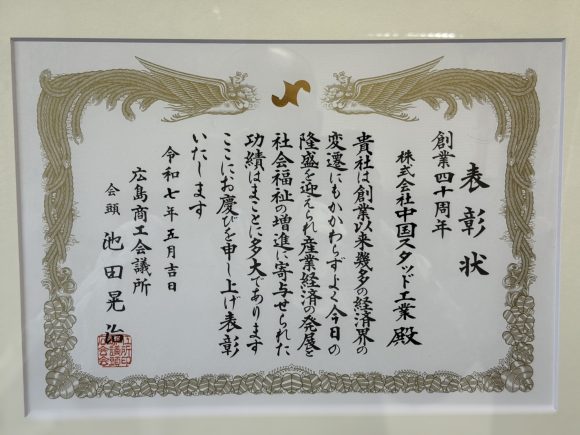 表彰状
創業四十周年
株式会社中国スタッド工業殿
貴社は創業以来幾多の経済界の
変遷にもかかわらずよく今日の
隆盛を迎えられ産業経済の発展と
社会福祉の増進に寄与せられた
功績はまことに多大であります
ここにお慶びを申し上げ表彰
いたします
令和七年五月吉日
広島商工会議所
会頭 池田晃治